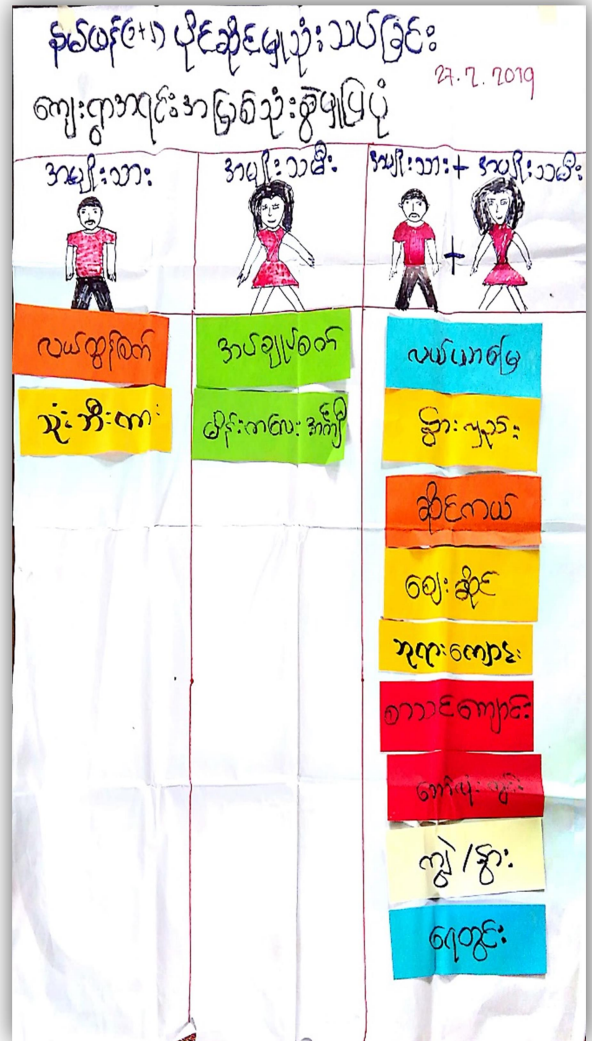 နမ်ဖန်(၁+၁) ပိုင်ဆိုင်မှုသုံးသပ်ခြင်း
27.7.2019
ကျေးရွာအရင်းအမြစ်သုံးစွဲမှုပြပုံ
အမျိုးသား
အမျိုးသမီး
အမျိုးသား + အမျိုးသမီး
+
လယ်ထွန်စက်
သုံးဘီးကား
အပ်ချုပ်စက်
မိန်းကလေးအင်္ကျီ
လယ်ယာမြေ
နွားလှည်း
ဆိုင်ကယ်
စျေးဆိုင်
ဘုရားကျောင်း
စာသင်ကျောင်း
ကျွဲ/နွား
ရေတွင်း